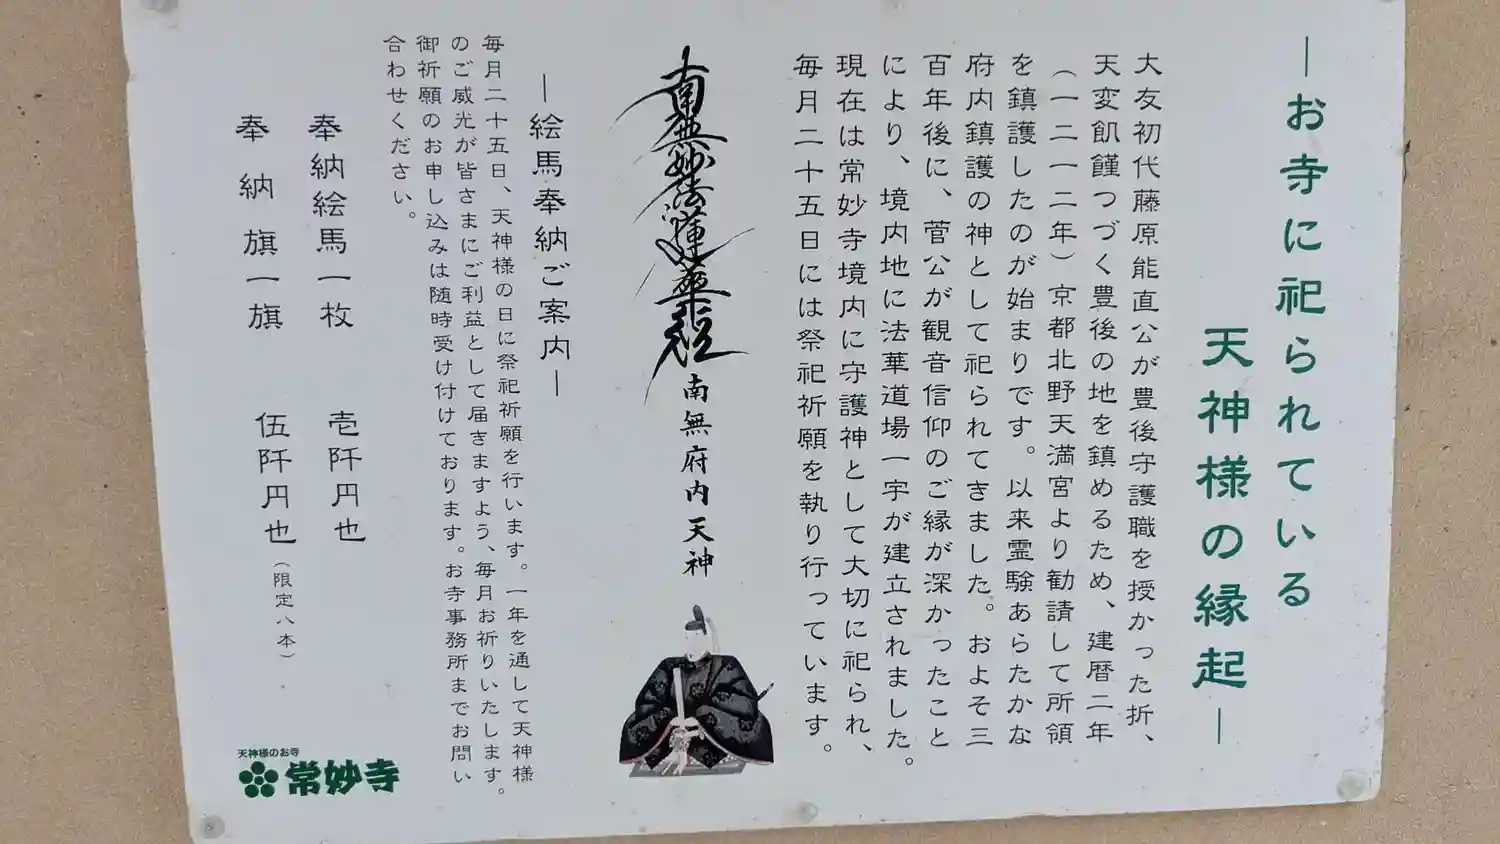 ―お寺に祀られている
天神様の縁起―
大友初代藤原能直公が豊後守護職を授かった折、
天変飢饉つづく豊後の地を鎮めるため、建暦二年
（一二一二年）京都北野天満宮より勧請して所領
を鎮護したのが始まりです。以来霊験あらたかな
府内鎮護の神として祀られてきました。およそ三
百年後に、菅公が観音信仰のご縁が深かったこと
により、境内地に法華道場一宇が建立されました。
現在は常妙寺境内に守護神として大切に祀られ、
毎月二十五日には祭祀祈願を執り行っています。
南無妙法蓮華経
南無府内天神
―絵馬奉納ご案内―
毎月二十五日、天神様の日に祭祀祈願を行います。一年を通して天神様
のご威光が皆さまにご利益として届きますよう、毎月お祈りいたします。
御祈願のお申し込みは随時受け付けております。お寺事務所までお問い
合わせください。
奉納絵馬一枚 壱阡円也
奉納旗一旗 伍阡円也（限定八本）
天神様のお寺
常妙寺